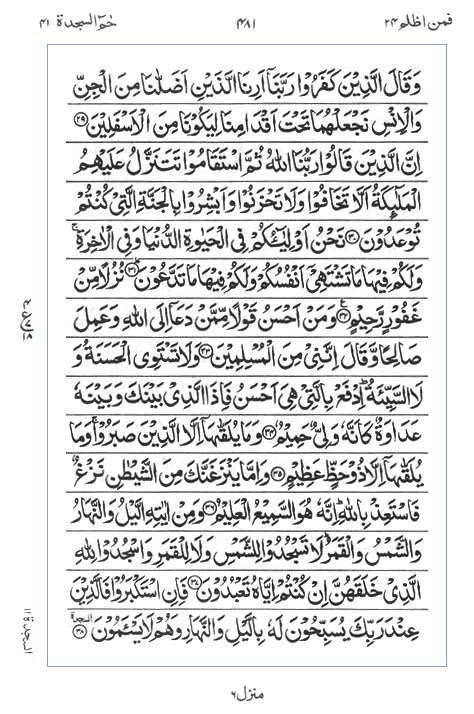 فمن اظلم ٢٤ ٤٨١ حٰمٓ السجدة ٤١
وَقَالَ الَّذِيْنَ كَفَرُوْا رَبَّنَاۤ اَرِنَا الَّذَيْنِ اَضَلّٰنَا مِنَ الْجِنِّ
وَالْاِنْسِ نَجْعَلْهُمَا تَحْتَ اَقْدَامِنَا لِيَكُوْنَا مِنَ الْاَسْفَلِيْنَ ﴿٢٩﴾
اِنَّ الَّذِيْنَ قَالُوْا رَبُّنَا اللّٰهُ ثُمَّ اسْتَقَامُوْا تَتَنَزَّلُ عَلَيْهِمُ
الْمَلٰٓئِكَةُ اَلَّا تَخَافُوْا وَلَا تَحْزَنُوْا وَاَبْشِرُوْا بِالْجَنَّةِ الَّتِيْ كُنْتُمْ
تُوْعَدُوْنَ ﴿٣٠﴾ نَحْنُ اَوْلِيٰٓؤُكُمْ فِي الْحَيٰوةِ الدُّنْيَا وَفِي الْاٰخِرَةِ ۚ
وَلَكُمْ فِيْهَا مَا تَشْتَهِيْۤ اَنْفُسُكُمْ وَلَكُمْ فِيْهَا مَا تَدَّعُوْنَ ﴿٣١﴾ نُزُلًا مِّنْ
غَفُوْرٍ رَّحِيْمٍ ﴿٣٢﴾ ع وَمَنْ اَحْسَنُ قَوْلًا مِّمَّنْ دَعَاۤ اِلَى اللّٰهِ وَعَمِلَ
صَالِحًا وَّقَالَ اِنَّنِيْ مِنَ الْمُسْلِمِيْنَ ﴿٣٣﴾ وَلَا تَسْتَوِي الْحَسَنَةُ وَ
لَا السَّيِّئَةُ ؕ اِدْفَعْ بِالَّتِيْ هِيَ اَحْسَنُ فَاِذَا الَّذِيْ بَيْنَكَ وَبَيْنَهٗ
عَدَاوَةٌ كَاَنَّهٗ وَلِيٌّ حَمِيْمٌ ﴿٣٤﴾ وَمَا يُلَقّٰىهَاۤ اِلَّا الَّذِيْنَ صَبَرُوْا ۚ وَمَا
يُلَقّٰىهَاۤ اِلَّا ذُوْ حَظٍّ عَظِيْمٍ ﴿٣٥﴾ وَاِمَّا يَنْزَغَنَّكَ مِنَ الشَّيْطٰنِ نَزْغٌ
فَاسْتَعِذْ بِاللّٰهِ ؕ اِنَّهٗ هُوَ السَّمِيْعُ الْعَلِيْمُ ﴿٣٦﴾ وَمِنْ اٰيٰتِهِ الَّيْلُ وَالنَّهَارُ
وَالشَّمْسُ وَالْقَمَرُ ؕ لَا تَسْجُدُوْا لِلشَّمْسِ وَلَا لِلْقَمَرِ وَاسْجُدُوْا لِلّٰهِ
الَّذِيْ خَلَقَهُنَّ اِنْ كُنْتُمْ اِيَّاهُ تَعْبُدُوْنَ ﴿٣٧﴾ فَاِنِ اسْتَكْبَرُوْا فَالَّذِيْنَ
عِنْدَ رَبِّكَ يُسَبِّحُوْنَ لَهٗ بِالَّيْلِ وَالنَّهَارِ وَهُمْ لَا يَسْئَمُوْنَ ﴿٣٨﴾ السجدة
السجدة ١١
منزل ٦